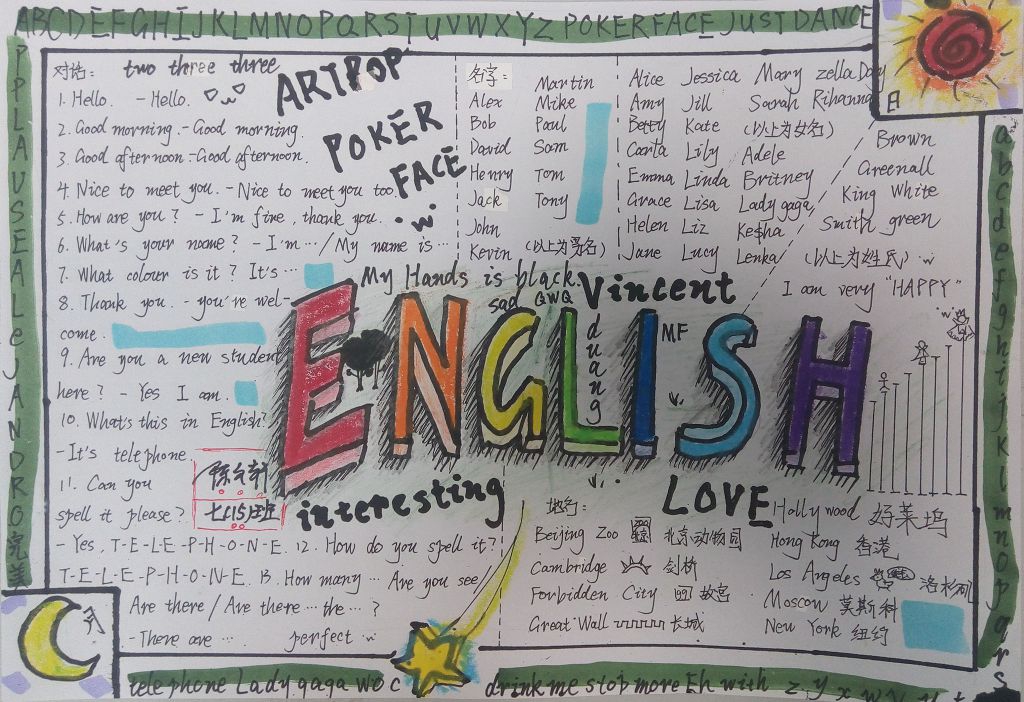 ABCDEFGHIJKLMNOPQRSTUVWXYZ POKERFACE JUST DANCE
PPLAUSEALeJANDRO完美
对话: two three three
1. Hello. - Hello.
2. Good morning. - Good morning.
3. Good afternoon - Good afternoon.
4 Nice to meet you. - Nice to meet you too.
5. How are you? - I'm fine, thank you.
6. What's your name? - I'm … / My name is …
7. What colour is it? It's …
8. Thank you. - you're wel-
come.
9. Are you a new student
here? - Yes I am.
10. What's this in English?
- It's telephone.
11. Can you
spell it please?
- Yes, T-E-L-E-P-H-O-N-E. 12. How do you spell it?
T-E-L-E-P-H-O-N-E. 13. How many … Are you see/
Are there / Are there … the … ?
- There are … perfect
ARTPOP
POKER
FACE
名字:
Alex
Bob
David
Henry
Jack
John
Kevin
Martin
Mike
Paul
Sam
Tom
Tony
(以上为男名)
Alice Jessica Mary Zella Day
Amy Jill Sarah Rihanna
Betty Kate (以上为女名)
Carla Lily Adele
Emma Linda Britney
Grace Lisa Lady gaga
Helen Liz Ke$ha
Jane Lucy Lenka
Brown
Greenall
King White
Smith green
(以上为姓氏)
I am very "HAPPY"
My Hands is black.
sad QWQ
Vincent
duang
MF
ENGLISH
interesting
LOVE
七(15)班
地名:
Beijing Zoo 北京动物园
Cambridge 剑桥
Forbidden City 故宫
Great Wall 长城
Hollywood 好莱坞
Hong Kong 香港
Los Angeles 洛杉矶
Moscow 莫斯科
New York 纽约
月
telephone Lady gaga woc
drink me stop more Eh with z y x w v u t
abcdefghijklmnopqrs